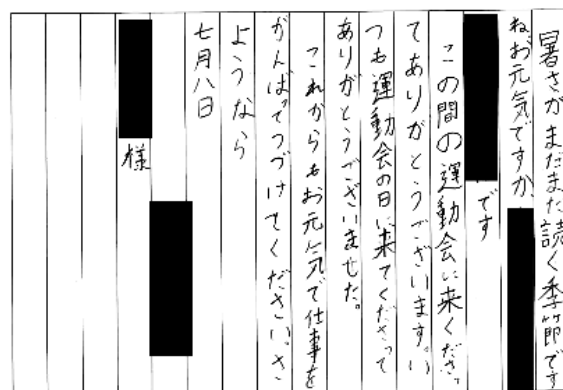 暑さがまだまだ読く季節です
ねお元気ですか
です
この間の運動会に来くださっ
てありがとうございます。い
つも運動会の日に来てくださって
ありがとうございました。
これからもお元気で仕事を
がんばってつづけてください。さ
ようなら
七月八日
様